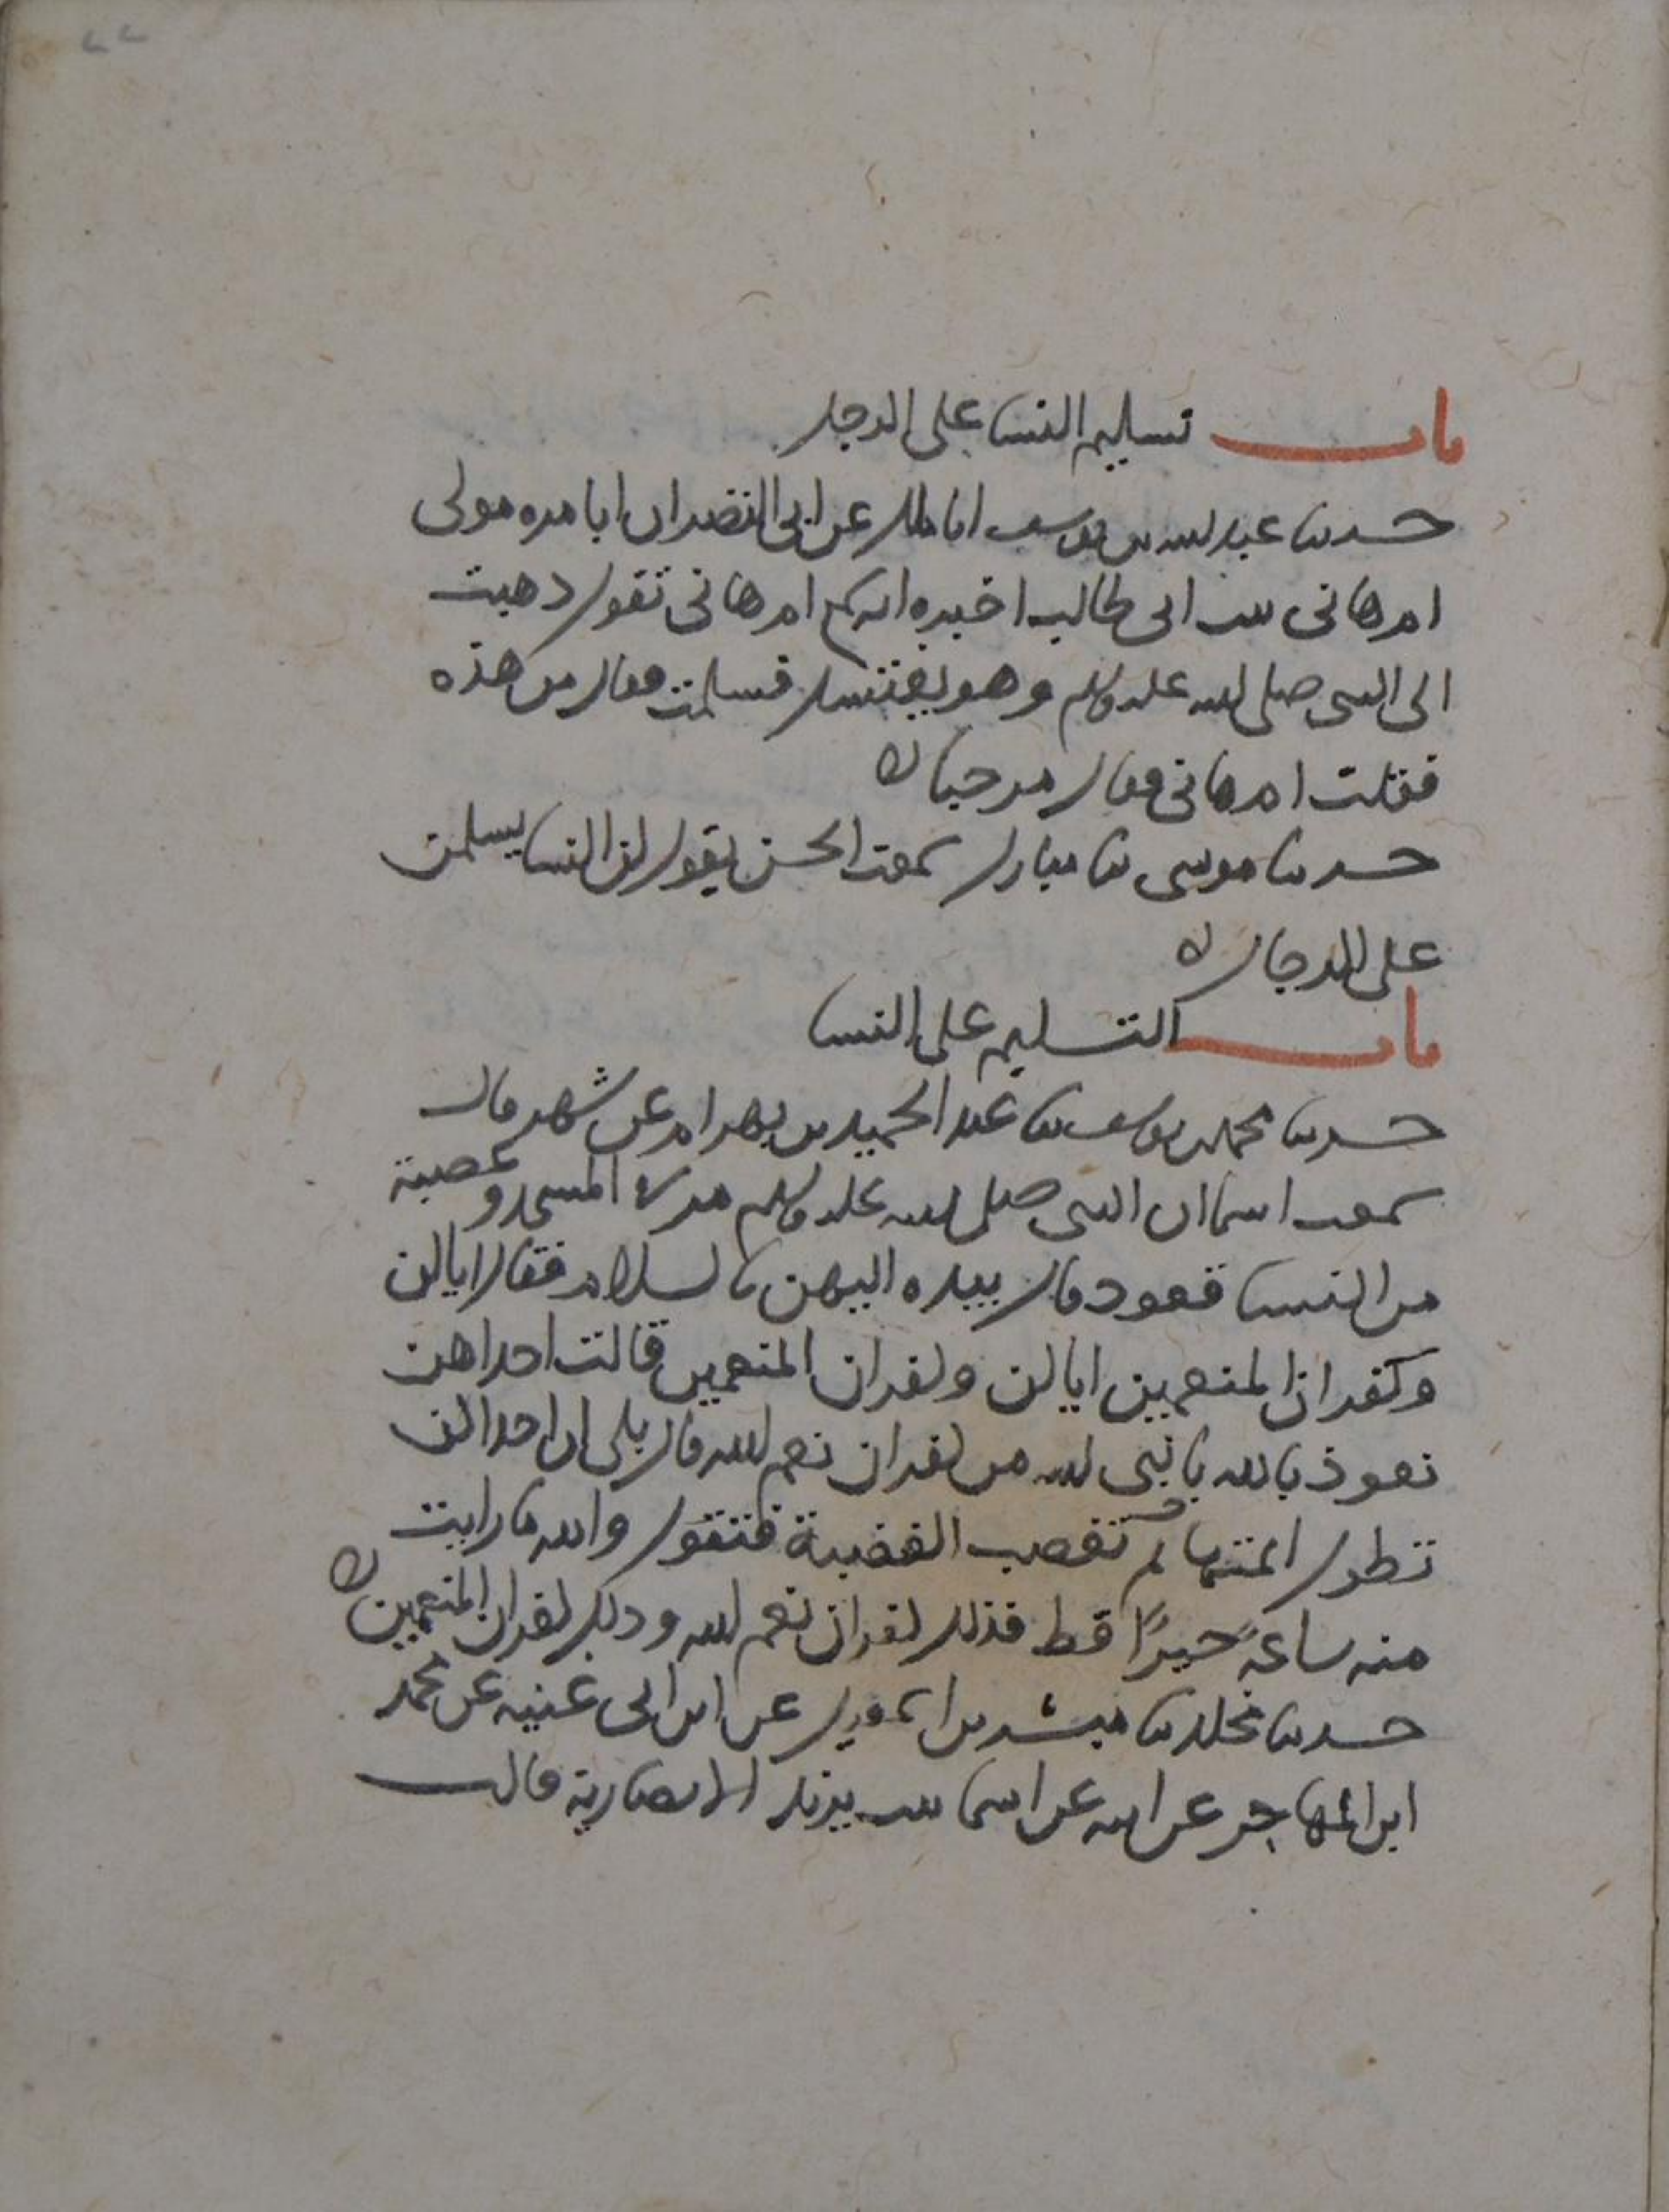 باب تسليم النسا على الرجل
حدثنا عبد الله بن يوسف انا ملك عن ابي النضر ان ابا مره مولى
ام هانى بنت ابى طالب اخبره انه سمع ام هانى تقول ذهبت
الى النبى صلى الله عليه وسلم وهو يغتسل فسلمت فقال من هذه
فقلت ام هانى فقال مرحبا ه
حدثنا موسى ثنا مبارك سمعت الحسن يقول كن النسا يسلمن
على الرجال ه
باب التسليم على النسا
حدثنا محمد بن يوسف ثنا عبد الحميد بن بهرام عن شهر قال
سمعت اسما ان النبى صلى الله عليه وسلم مر في المسجد وعصبة
من النسا قعود قال بيده اليهن بالسلام فقال اياكن
وكفران المنعمين اياكن وكفران المنعمين قالت احداهن
نعوذ بالله يا نبى الله من كفران نعم الله قال بلى ان احداكن
تطول ايمتها ثم تغضب الغضبة فتقول والله ما رايت
منه ساعةً خيرًا قط فذلك كفران نعم الله وذلك كفران المنعمين ه
حدثنا مخلد ثنا مبشر بن اسمعيل عن ابن ابى غنيه عن محمد
ابن المهاجر عن ابيه عن اسما بنت يزيد الانصارية قالت